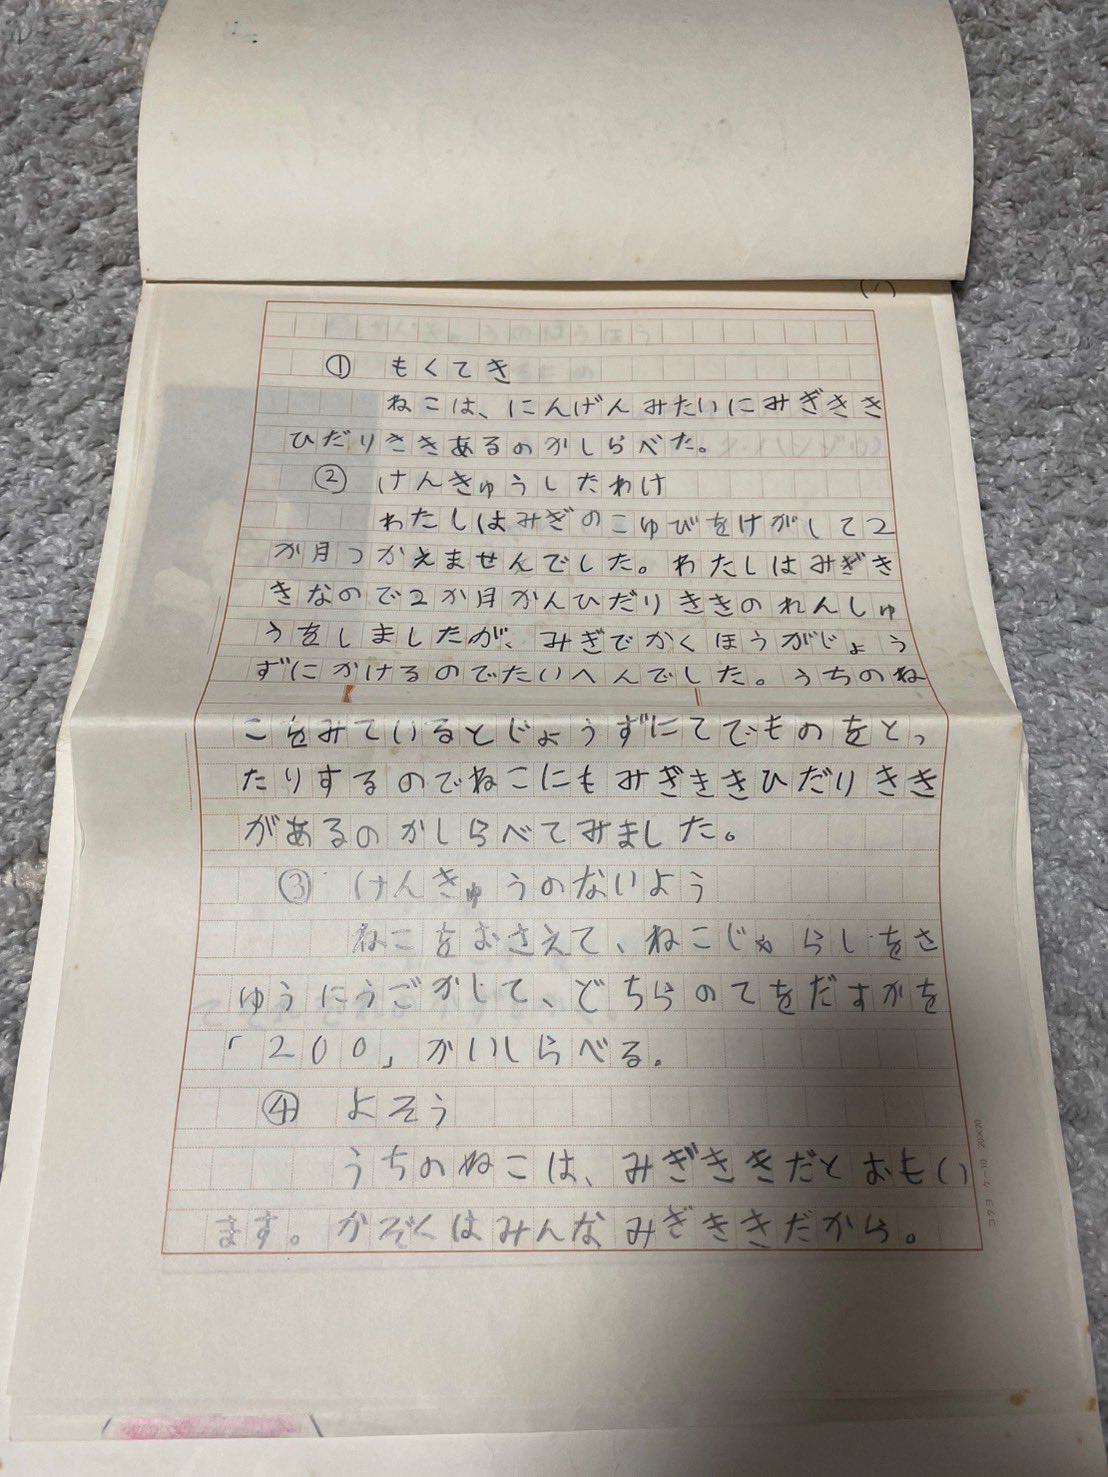 ① もくてき
ねこは、にんげんみたいにみぎきき
ひだりききあるのかしらべた。
② けんきゅうしたわけ
わたしはみぎのこゆびをけがして2
か月つかえませんでした。わたしはみぎき
きなので2か月かんひだりききのれんしゅ
うをしましたが、みぎでかくほうがじょう
ずにかけるのでたいへんでした。うちのね
こをみているとじょうずにてでものをとっ
たりするのでねこにもみぎききひだりきき
があるのかしらべてみました。
③ けんきゅうのないよう
ねこをおさえて、ねこじゃらしをさ
ゆうにうごかして、どちらのてをだすかを
「200」かいしらべる。
④ よそう
うちのねこは、みぎききだとおもい
ます。かぞくはみんなみぎききだから。